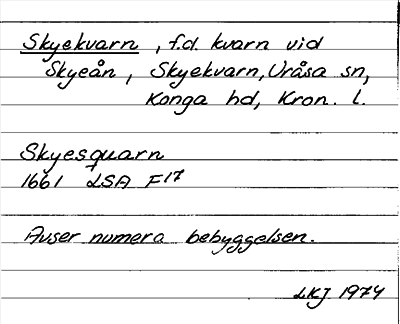 Skyekvarn, f.d. kvarn vid
Skyeån, Skyekvarn, Uråsa sn,
Konga hd, Kron. l.
Skyesquarn
1661 LSA F17
Avser numera bebyggelsen.
LKJ 1974